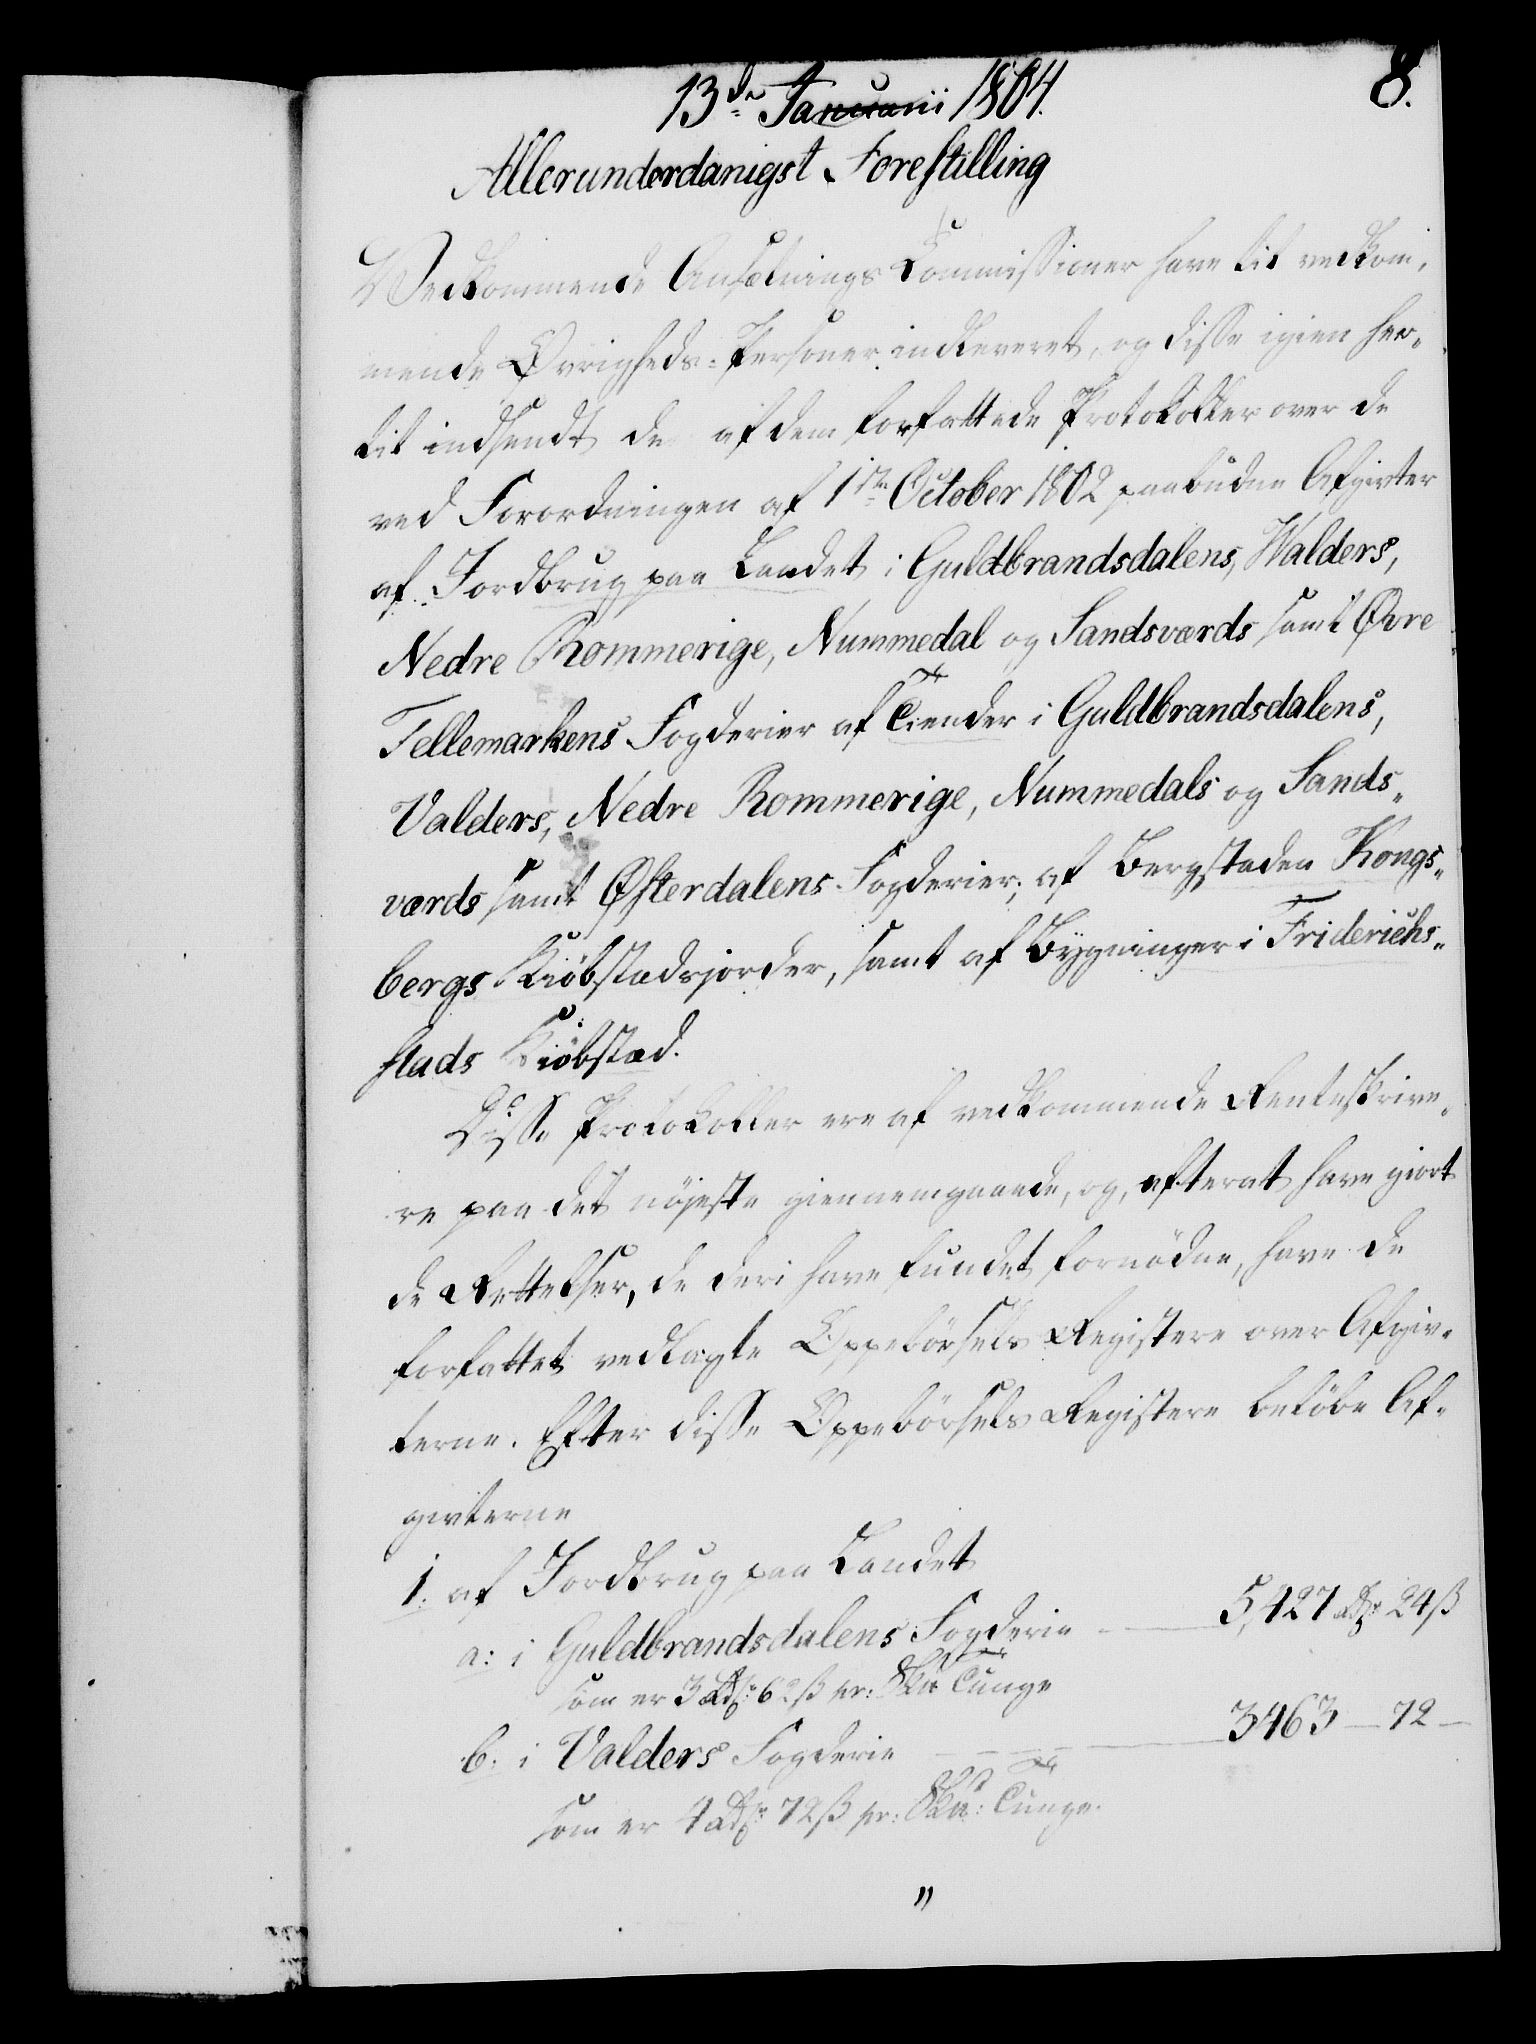 8.
13de Januarii 1804.
Allerunderdanigst Forestilling
Vedkommende Ansætnings Commissioner have til vedkom-
mende Øvrigheds-Personer indleveret, og disse igien her-
til indsendt de af dem forfattede Protokoller over de
ved Forordningen af 1ste October 1802 paabudne Afgivter
af Jordbrug paa Landet i Guldbrandsdalens, Walders,
Nedre Rommerige, Nummedal og Sandsværds samt Øvre
Tellemarkens Fogderier af Tiender i Guldbrandsdalens,
Valders, Nedre Rommerige, Nummedals og Sands„
værds samt Østerdalens Fogderier; af Bergstaden Kongs„
bergs Kiöbstadsjorder, samt af Bygninger i Friderichs„
stads Kiöbstad.
Disse Protokoller ere af vedkommende Renteskrive-
re paa det nöjeste giennemgaaede, og, efterat have giort
de Rettelser, de deri have fundet fornödne, have de
forfattet vedlagte Oppebörsels Registere over Afgiv-
terne. Efter disse Oppebörsels Registere belöbe Af-
givterne
1. af Jordbrug paa Landet
a: i Guldbrandsdalens Fogderie — 5,427 Rdr 24 ß
som er 3 Rdr: 62 ß pr: Tunge
b. i Valders Fogderie — 3463 — 72 —
som er 4 Rdr: 72 ß pr: Tunge.
"